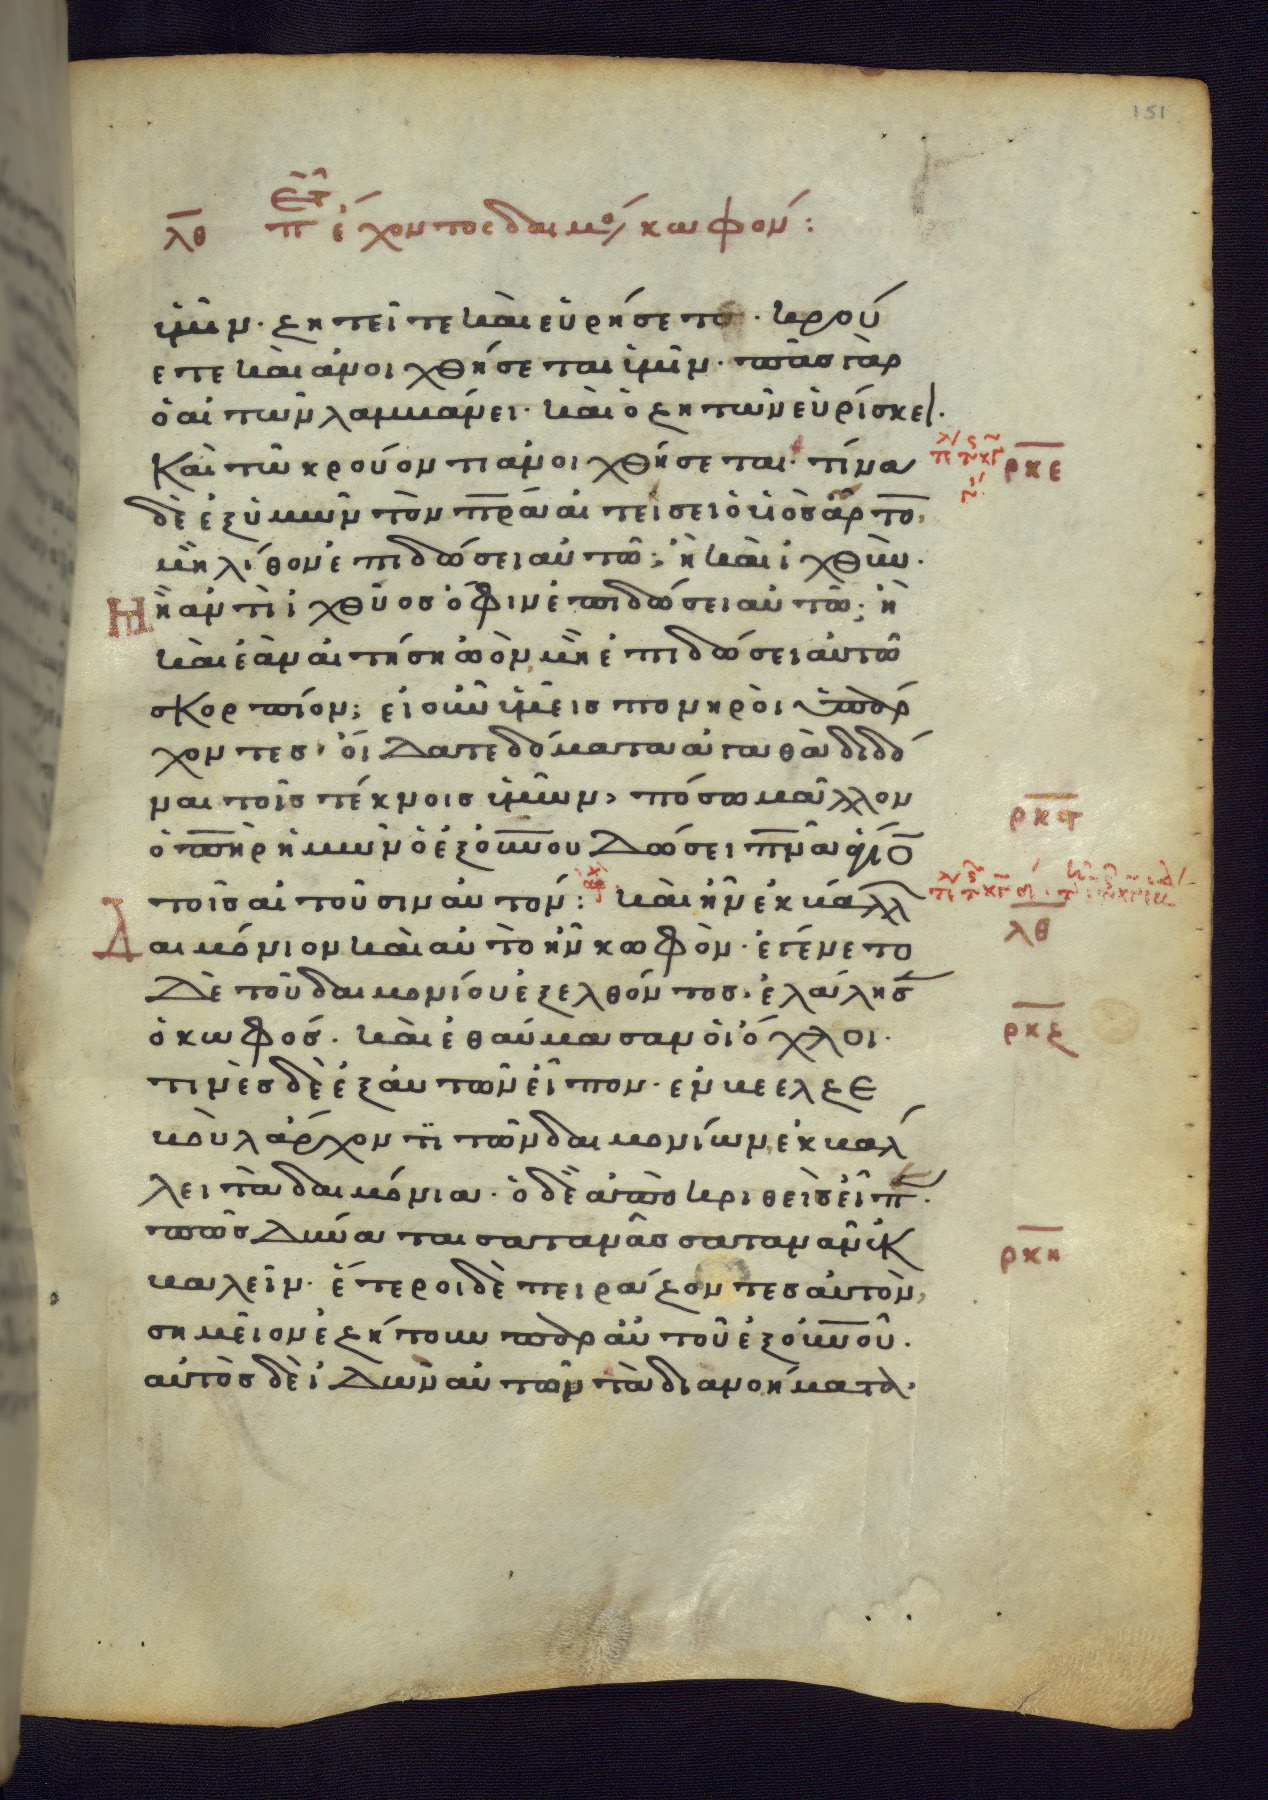 151
λθ π ἔχοντος δαιμο κωφόν :
ὑμῖν· ζητεῖτε καὶ εὑρήσετε· κρού
ετε καὶ ἀνοιχθήσεται ὑμῖν· πᾶς γὰρ
ὁ αἰτῶν λαμβάνει· καὶ ὁ ζητῶν εὑρίσκει·
Καὶ τῷ κρούοντι ἀνοιχθήσεται· τίνα
ρκε
δὲ ἐξ ὑμῶν τὸν πρα αἰτήσει ὁ υἱὸς ἄρτο,
μὴ λίθον ἐπιδώσει αὐτῷ; ἢ καὶ ἰχθὺν·
μὴ ἀντὶ ἰχθύος ὄφιν ἐπιδώσει αὐτῷ; ἢ
καὶ ἐὰν αἰτήσῃ ὠὸν μὴ ἐπιδώσει αὐτῷ
σκορπίον; εἰ οὖν ὑμεῖς πονηροὶ ὑπάρ
χοντες, οἴδατε δόματα ἀγαθὰ διδό
ναι τοῖς τέκνοις ὑμῶν, πόσω μᾶλλον
ρκς
ὁ πὴρ ἡμῶν ὁ ἐξ οὐνου δώσει πνα
τοῖς αἰτοῦσιν αὐτόν : καὶ ἦν ἐκβάλλ
λθ
Δαιμόνιον καὶ αὐτὸ ἦν κωφὸν· ἐγένετο
δὲ τοῦ δαιμονίου ἐξελθόντος, ἐλάλησ
ρκζ
ὁ κωφός· καὶ ἐθαύμασαν οἱ ὄχλοι·
τινὲς δὲ ἐξ αὐτῶν εἶπον· ἐν βεελζε
βοὺλ ἄρχοντι τῶν δαιμονίων, ἐκβάλ
λει τὰ δαιμόνια· ὁ δὲ ἀποκριθεὶς εἶπ·
πῶς δύναται σατανᾶς σατανᾶν ἐκ
ρκη
βαλεῖν· ἕτεροι δὲ πειράζοντες αὐτὸν,
σημεῖον ἐζήτουν παρ αὐτοῦ ἐξ οὐνοῦ·
αὐτὸς δὲ ἰδὼν αὐτῶν τὰ διανοήματα·